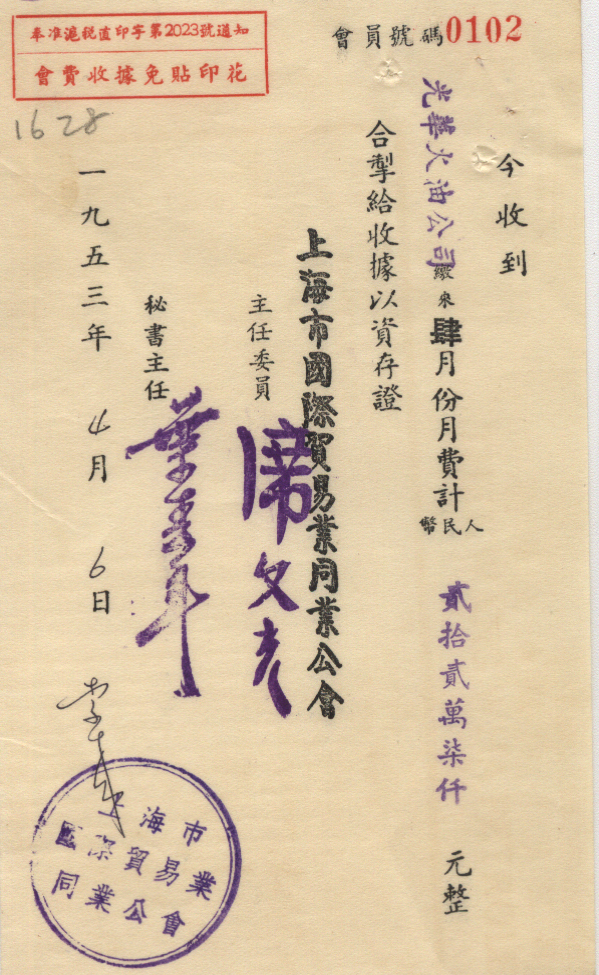 奉准滬税直印字第2023號通知
會費收據免貼印花
會員號碼0102
1628
今收到
光華火油公司繳來肆月份月費計人民幣貳拾貳萬柒仟元整
合掣給收據以資存證
上海市國際貿易業同業公會
主任委員 席文光
秘書主任 葉春年
一九五三年4月6日
上海市
國際貿易業
同業公會